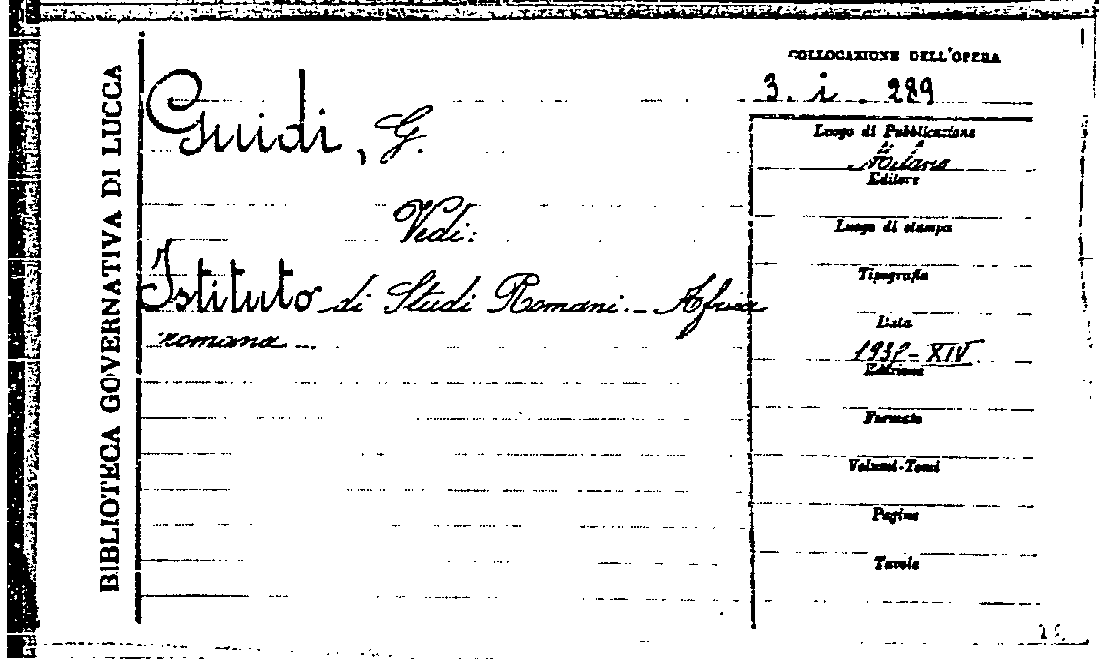 BIBLIOTECA GOVERNATIVA DI LUCCA
Guidi, G.
Vedi:
Istituto di Studi Romani. - Africa
romana -
COLLOCAZIONE DELL'OPERA
3. i. 289
Luogo di Pubblicazione
Milano
Editore
Luogo di stampa
Tipografia
Data
1937-XIV
Edizione
Formato
Volumi-Tomi
Pagine
Tavole